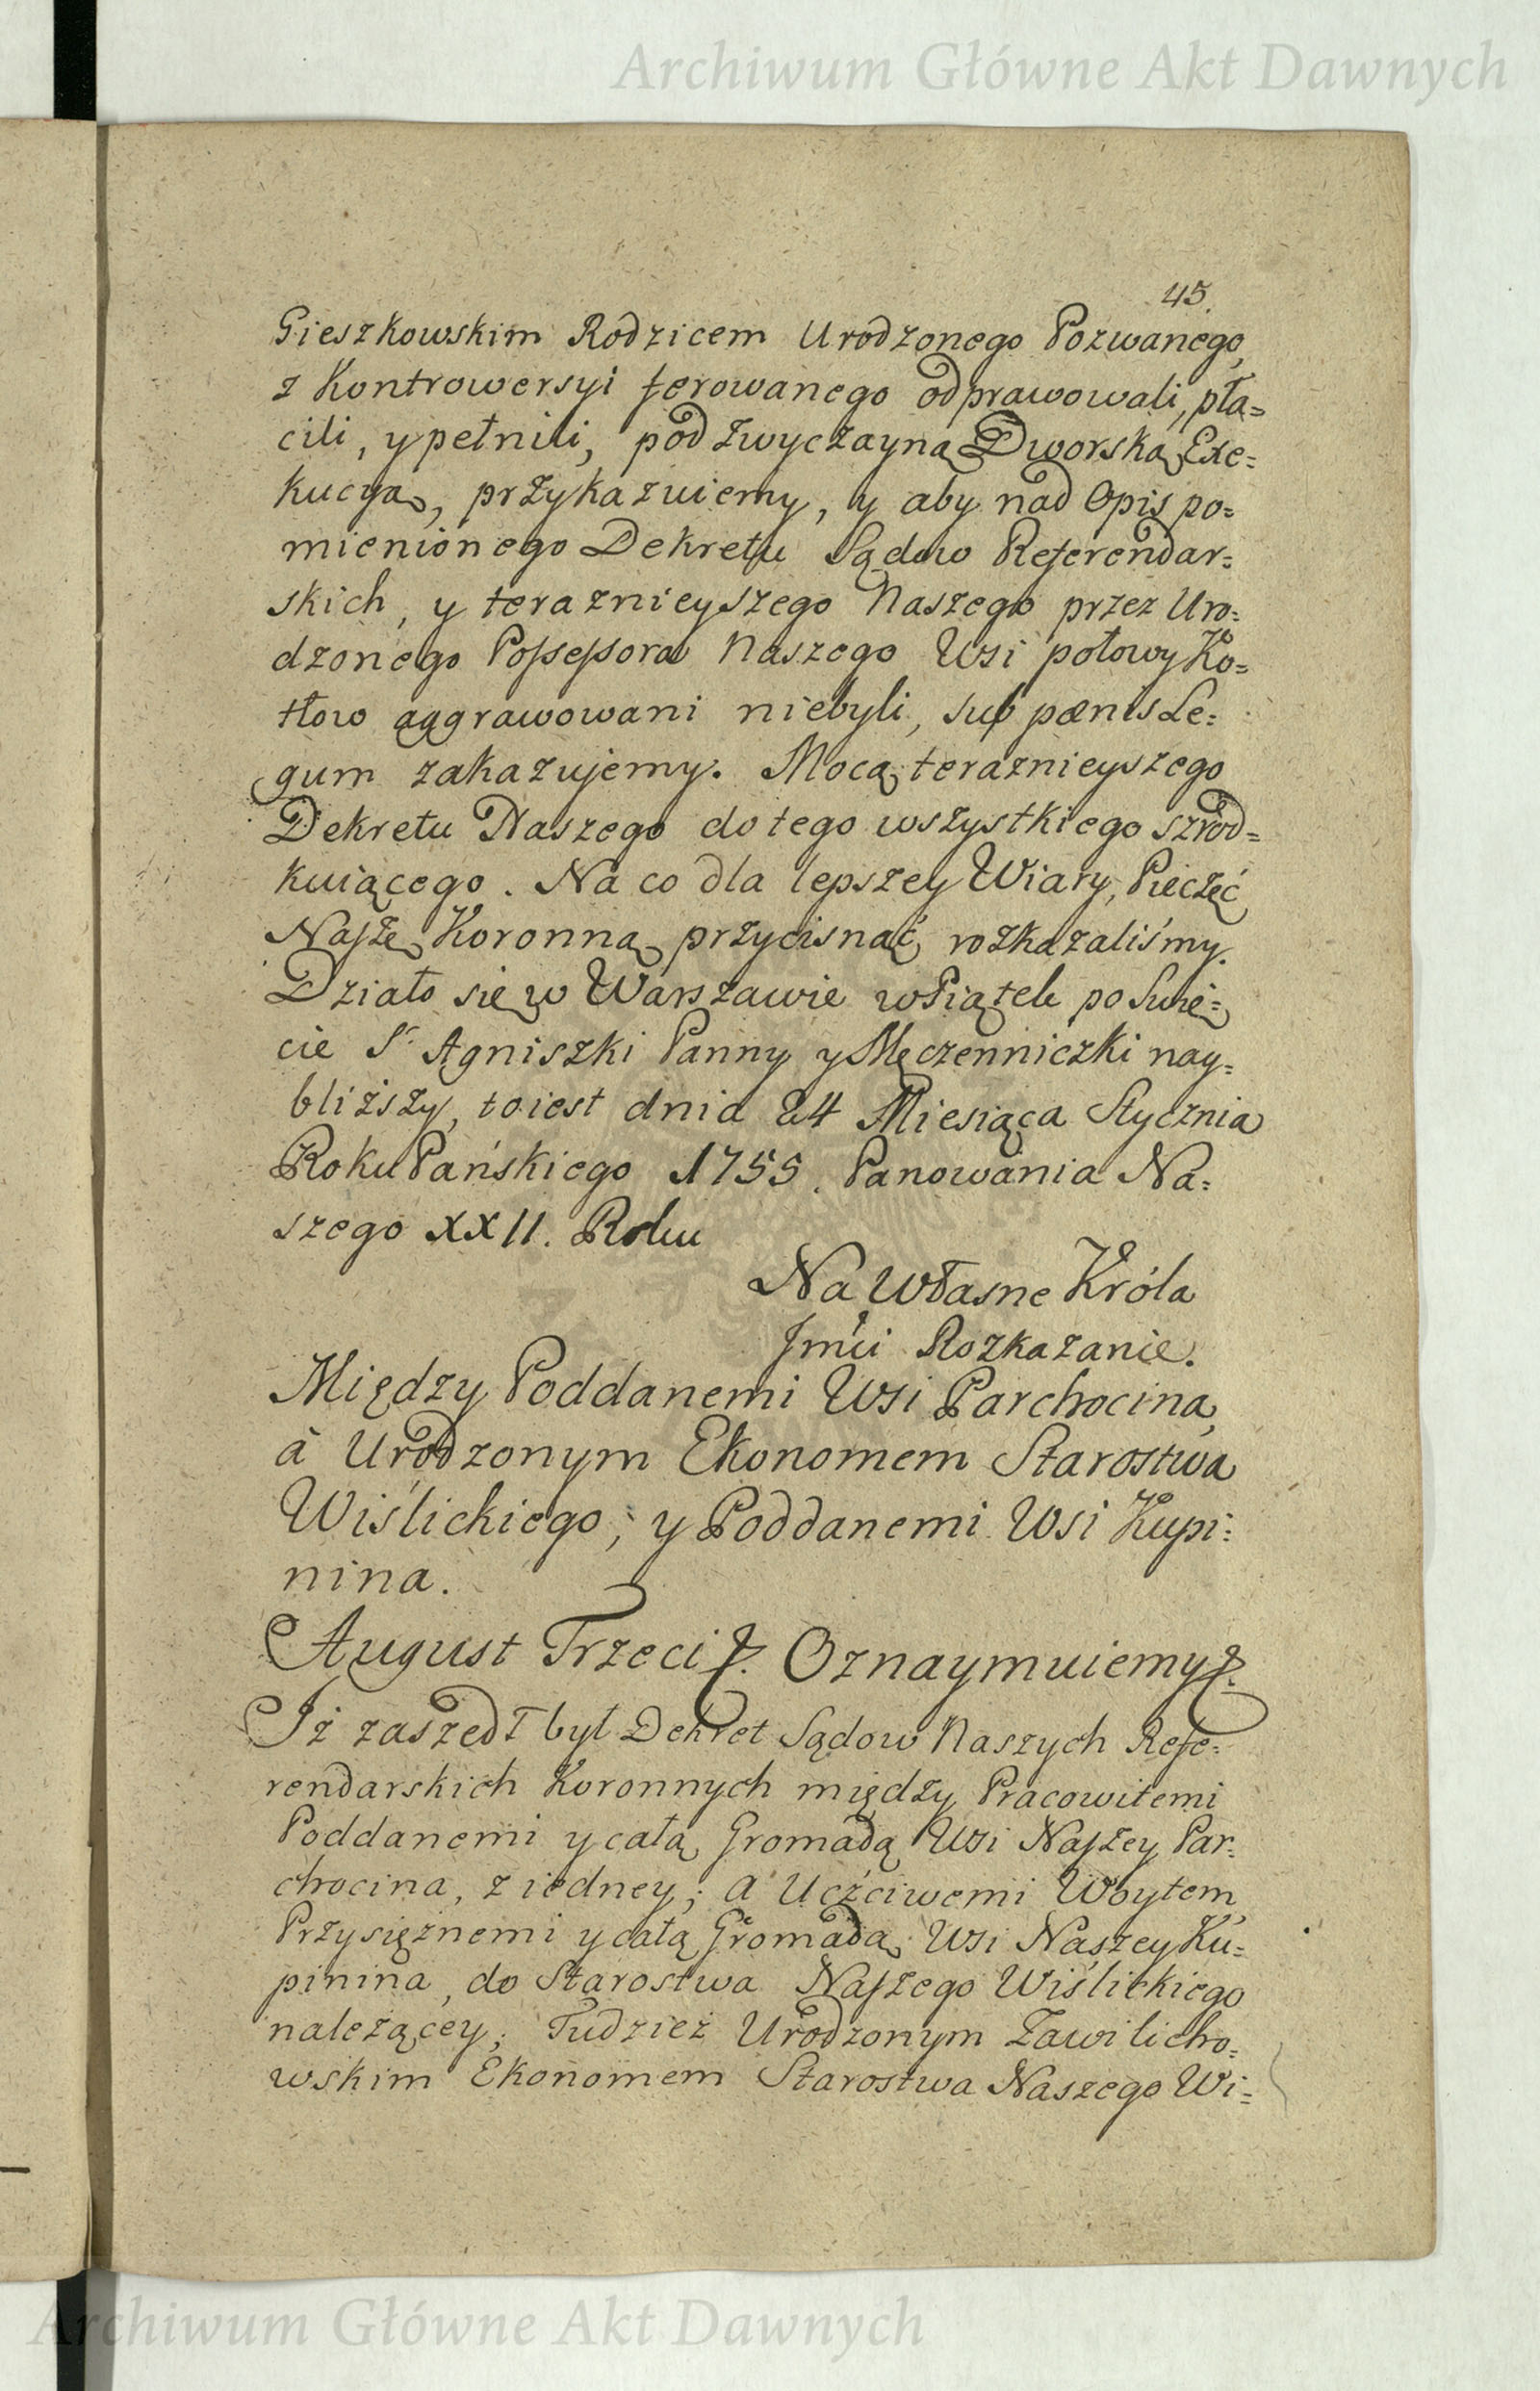 Archiwum Główne Akt Dawnych
45.
Gieszkowskim Rodzicem Urodzonego Pozwanego,
z Kontrowersyi ferowanego odprawowali, pła=
cili, y pełnili, pod zwyczayną Dworską Exe=
kucyą, przykazuiemy, y aby nad Opis po=
mienionego Dekretu Sądow Referendar=
skich, y teraznieyszego Naszego przez Uro=
dzonego Possessora Naszego Wsi połowy Ko=
tłow aggrawowani niebyli, sub pænis Le=
gum zakazujemy. Mocą teraznieyszego
Dekretu Naszego do tego wszystkiego szrod=
kuiącego. Na co dla lepszey Wiary, Pieczęć
Naszę Koronną przycisnąć rozkazaliśmy.
Działo się w Warszawie w Piątek po Swię=
cie S. Agniszki Panny y Męczenniczki nay=
bliższy, to iest dnia 24 Miesiąca Stycznia
Roku Pańskiego 1755. Panowania Na=
szego XXII. Roku
Na Własne Króla
Jmći Rozkazanie.
Między Poddanemi Wsi Parchocina,
à Urodzonym Ekonomem Starostwa
Wiślickiego; y Poddanemi Wsi Kupi=
nina.
August Trzeci &. Oznaymuiemy &.
Iż zaszedł był Dekret Sądow Naszych Refe=
rendarskich Koronnych między Pracowitemi
Poddanemi y całą Gromadą Wsi Naszey Par=
chocina, z iedney; a Uczciwemi Woytem,
Przysiężnemi y całą Gromadą Wsi Naszey Ku=
pinina, do Starostwa Naszego Wiślickiego
należącey; Tudzież Urodzonym Zawilicho=
wskim Ekonomem Starostwa Naszego Wi=
Archiwum Główne Akt Dawnych